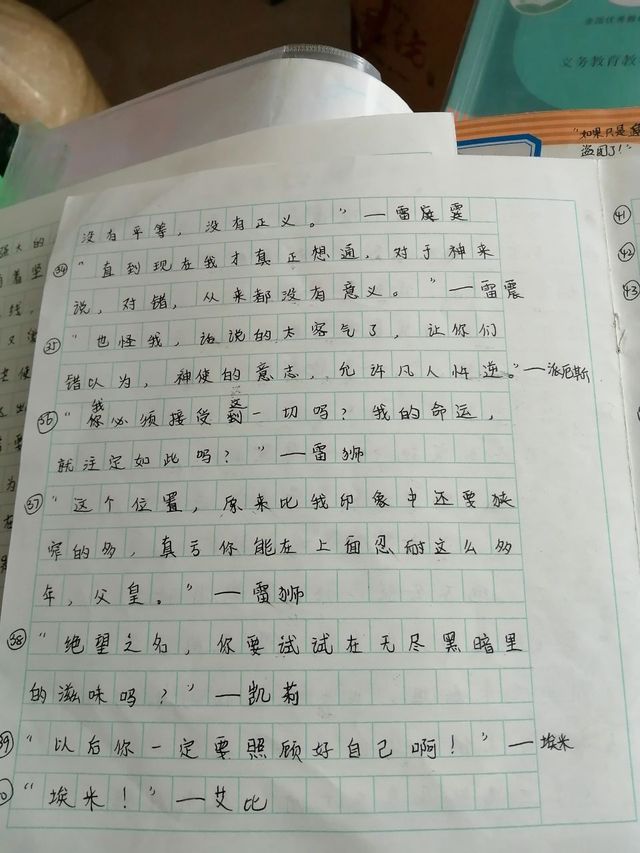 全国优秀教
义务教育教
"如果只是
盗国了！"
没有平等，没有正义。"—雷霆霆
㉞"直到现在我才真正想通，对于神来
说，对错，从来都没有意义。"—雷震
㉟"也怪我，话说的太客气了，让你们
错以为，神使的意志，允许凡人忤逆。"—派厄斯
㊱"我你必须接受到这一切吗？我的命运，
就注定如此吗？"—雷狮
㊲"这个位置，原来比我印象中还要狭
窄的多，真亏你能在上面忍耐这么多
年，父皇。"—雷狮
㊳"绝望之名，你要试试在无尽黑暗里
的滋味吗？"—凯莉
㊴"以后你一定要照顾好自己啊！"—埃米
"埃米！"—艾比
㊶
㊷
㊸